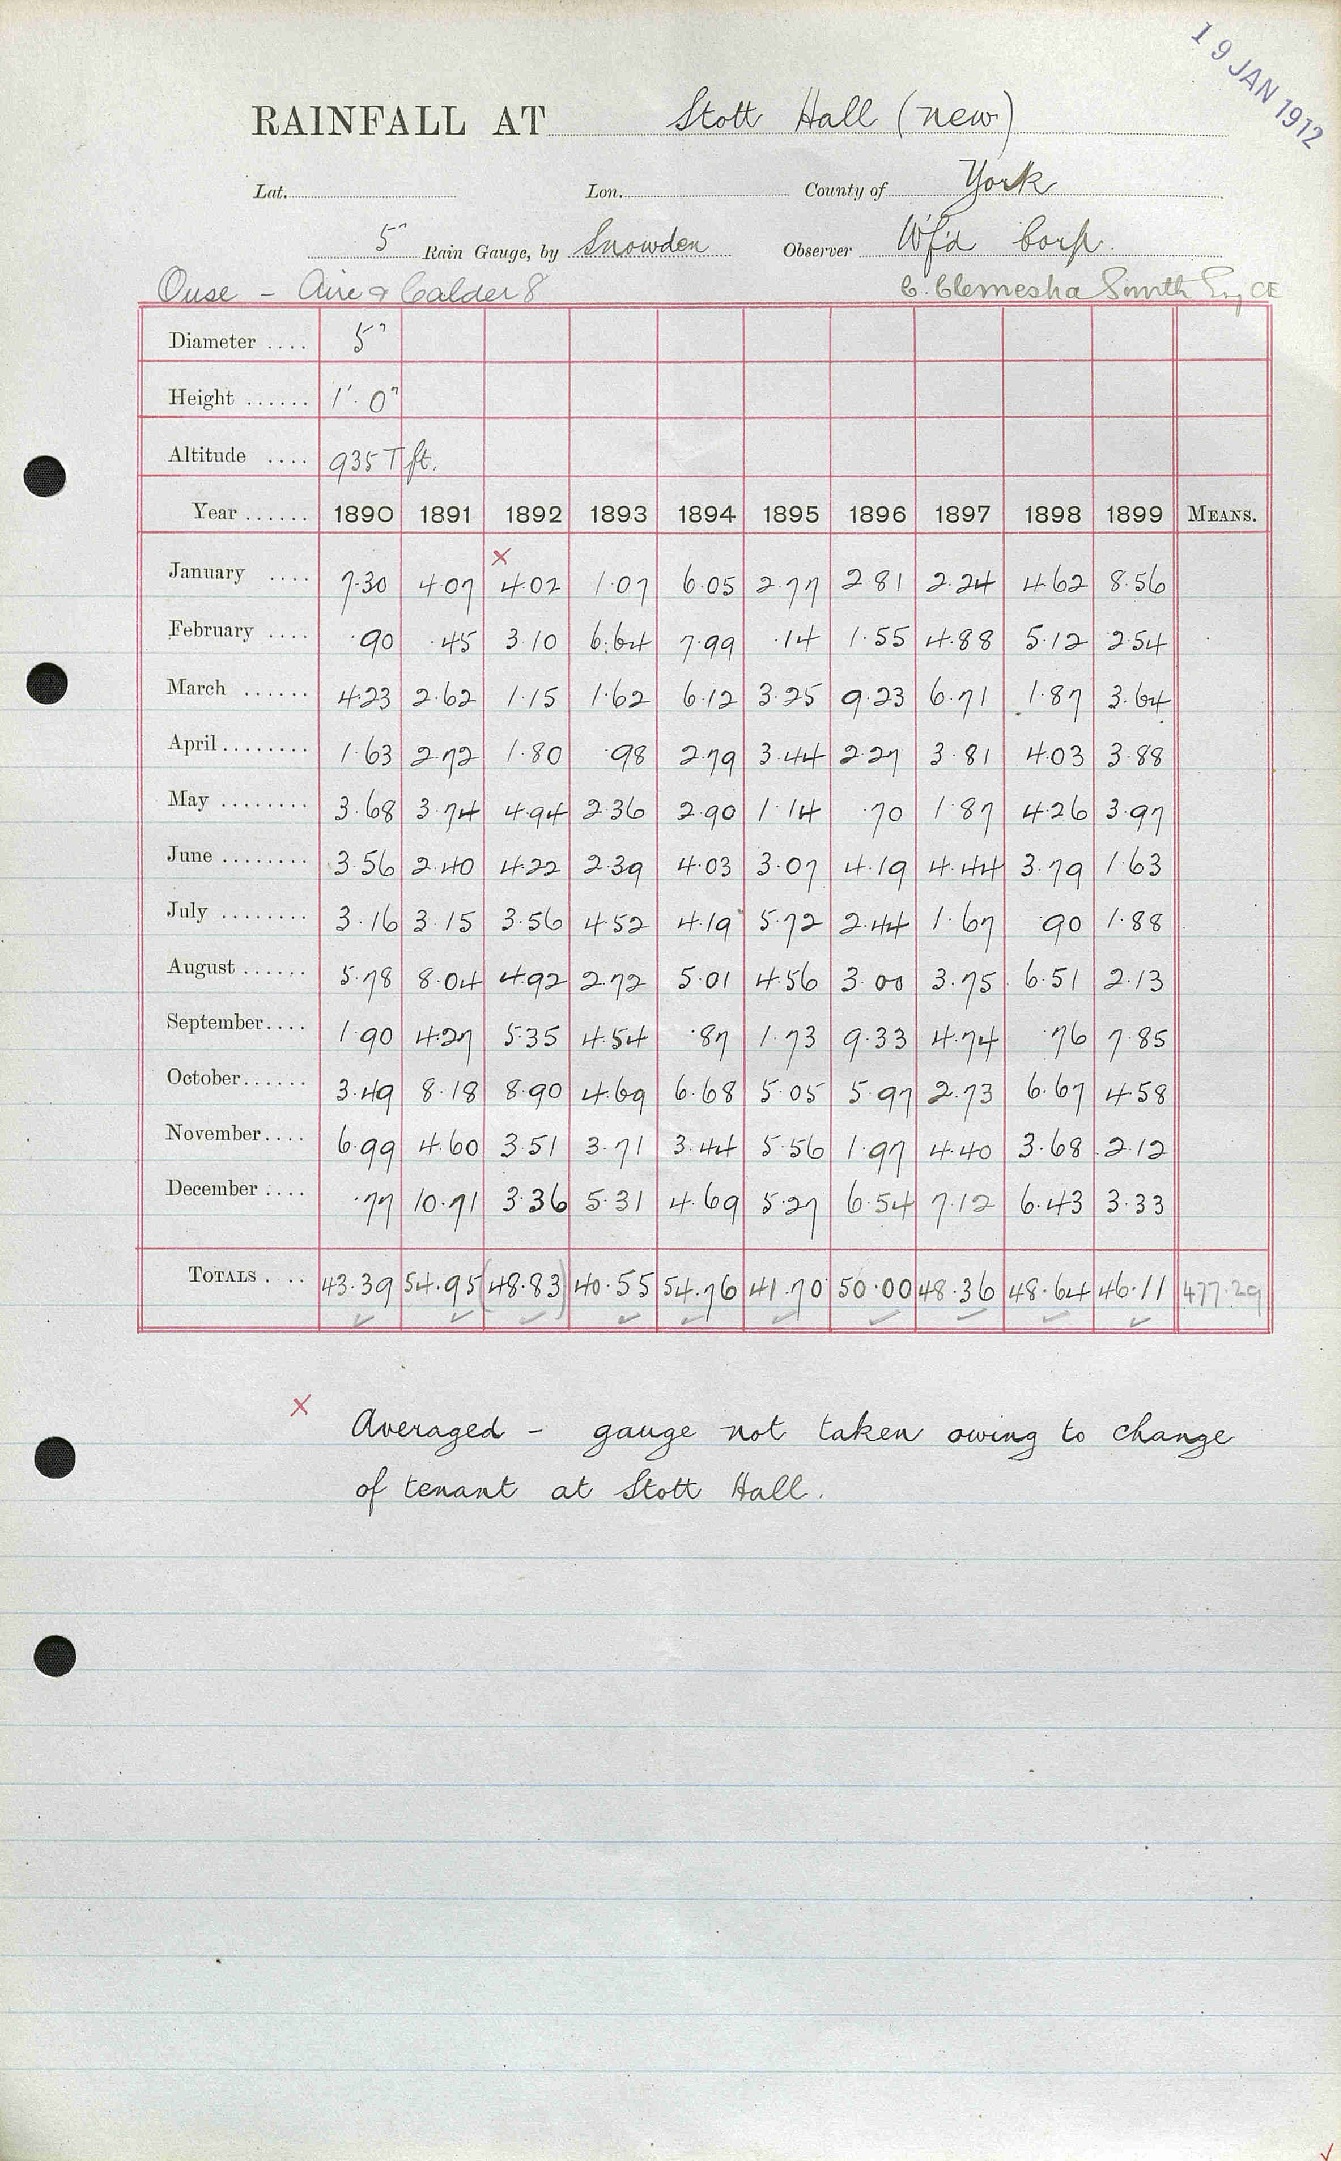 19 JAN 1912
RAINFALL AT Stott Hall (new)
Lat. Lon. County of York
5" Rain Gauge, by Snowden Observer Wf'd Corp.
Ouse - Aire & Calder 8 C. Clemesha Smith Esq CE
Diameter .... 5"
Height ...... 1'. 0"
Altitude .... 935 T ft.
Year ...... 1890 1891 1892 1893 1894 1895 1896 1897 1898 1899 MEANS.
×
January .... 7.30 4.07 4.02 1.07 6.05 2.77 2.81 2.24 4.62 8.56
February .... .90 .45 3.10 6.64 7.99 .14 1.55 4.88 5.12 2.54
March ...... 4.23 2.62 1.15 1.62 6.12 3.25 9.23 6.71 1.87 3.64
April ........ 1.63 2.72 1.80 .98 2.79 3.44 2.27 3.81 4.03 3.88
May ........ 3.68 3.74 4.94 2.36 2.90 1.14 .70 1.87 4.26 3.97
June ........ 3.56 2.40 4.22 2.39 4.03 3.07 4.19 4.44 3.79 1.63
July ........ 3.16 3.15 3.56 4.52 4.19 5.72 2.44 1.67 .90 1.88
August ...... 5.78 8.04 4.92 2.72 5.01 4.56 3.00 3.75 6.51 2.13
September.... 1.90 4.27 5.35 4.54 .87 1.73 9.33 4.74 .76 7.85
October...... 3.49 8.18 8.90 4.69 6.68 5.05 5.97 2.73 6.67 4.58
November.... 6.99 4.60 3.51 3.71 3.44 5.56 1.97 4.40 3.68 2.12
December .... .77 10.71 3.36 5.31 4.69 5.27 6.54 7.12 6.43 3.33
TOTALS . .. 43.39 54.95 (48.83) 40.55 54.76 41.70 50.00 48.36 48.64 46.11 477.29
× Averaged - gauge not taken owing to change
of tenant at Stott Hall.